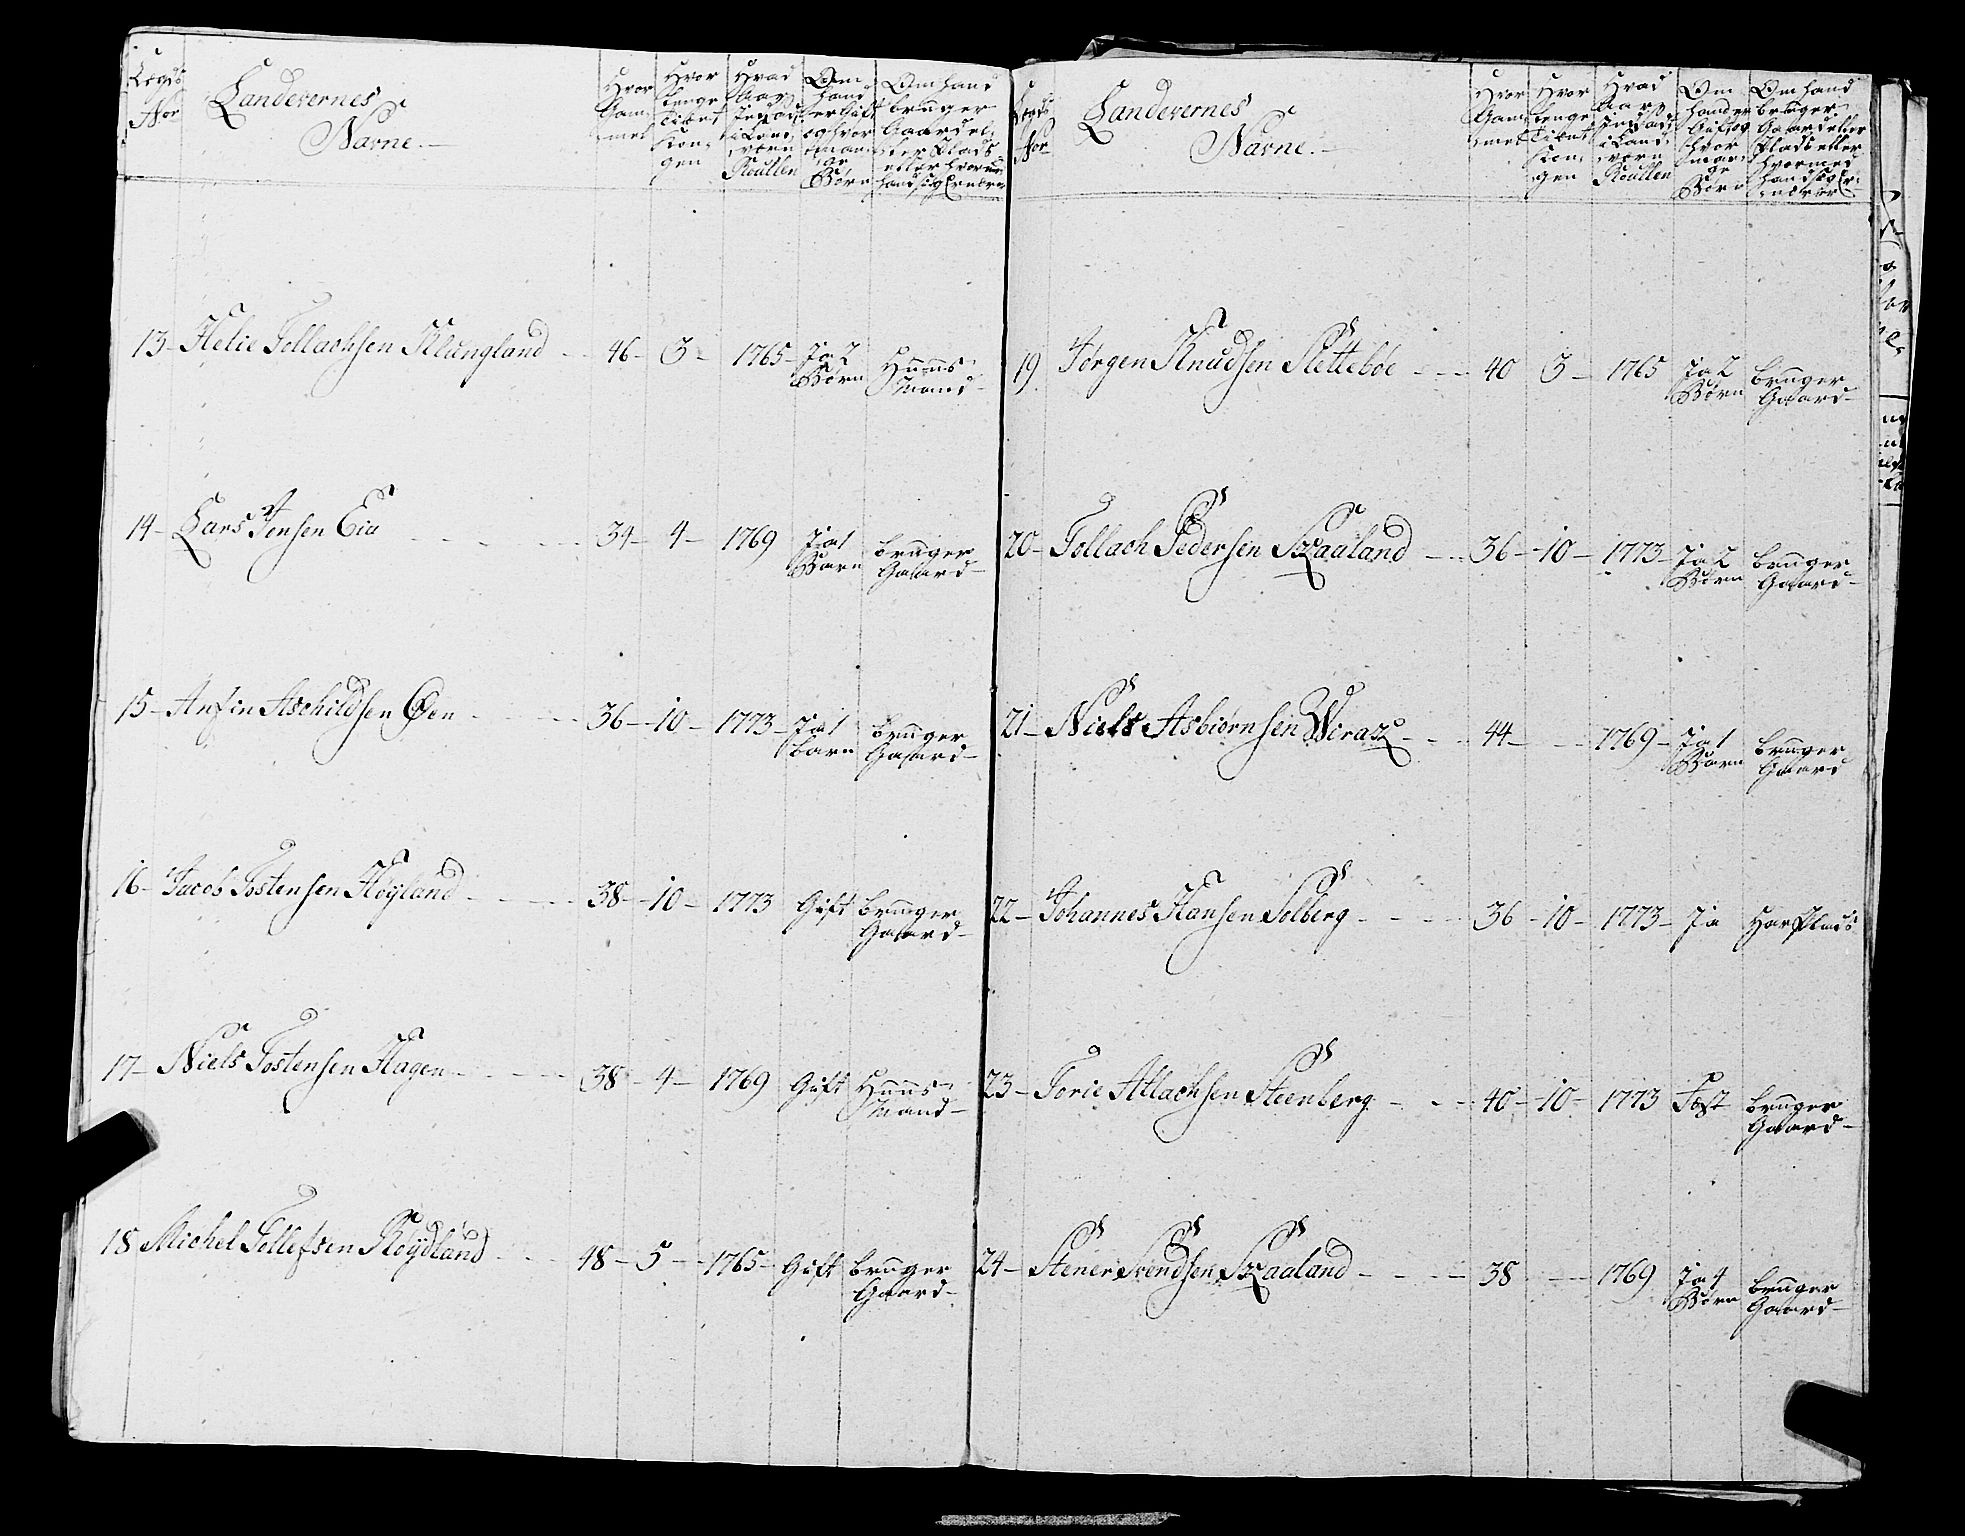 Legds
No:
Landevernes
Navne.—
Hvor
Gam-
mel
Hvor
lenge
Tient
Kon-
gen
Hvad
Aar
Indsadt
i Land-
værn
Roullen
Om
hand
er Gift
og hvor
man-
ge
Børn
Om hand
bruger
Gaard el-
ler Plads
eller hvormed
hand sig Ernærer
13 – Helie Tollachsen Klungland – – 46 – 3 – 1765 – Ja 2
Børn
Huus-
Mand –
14 – Lars Jensen Eia – – – 34 – 4 – 1769 Ja 1
Barn
bruger
Gaard –
15 – Anfin Aschildsen Øen – – – 36 – 10 – 1773 – Ja 1
barn
bruger
Gaard –
16 – Jacob Tostensen Høyland – – – 38 – 10 – 1773 Gift bruger
Gaard –
17 – Niels Tostensen Hagen – – – 38 – 4 – 1769 Gift Huus-
Mand –
18 Michel Tollefsen Røydland – – 48 – 5 – 1765 – Gift bruger
Gaard –
Legds
No:
Landevernes
Navne.—
Hvor
Gam-
mel
Hvor
lenge
Tient
Kon-
gen
Hvad
Aar
Indsadt
i Land-
værn
Roullen
Om
hand er
Gift og
hvor
man-
ge
Børn
Om hand
bruger
Gaard eller
Plads eller
hvormed
hand sig Er-
nærer
19 Jørgen Knudsen Slettebøe – – – 40 3 – 1765 Ja 2
Børn
bruger
Gaard –
20 – Tollach Pedersen Skaaland – – 36 – 10 – 1773 – Ja 2
Børn
bruger
Gaard –
21 – Niels Asbiørnsen Werak – – 44 – – 1769 – Ja 1
Barn
bruger
Gaard
22 – Johannes Hansen Solberg – – – 36 – 10 – 1773 – Ja Har Plads
23 – Torie Atlachsen Steenberg – – – 40 – 10 – 1773 bruger
Gaard –
24 – Stener Svendsen Skaaland – – – 38 – 1769 Ja 4
Børn
bruger
Gaard –